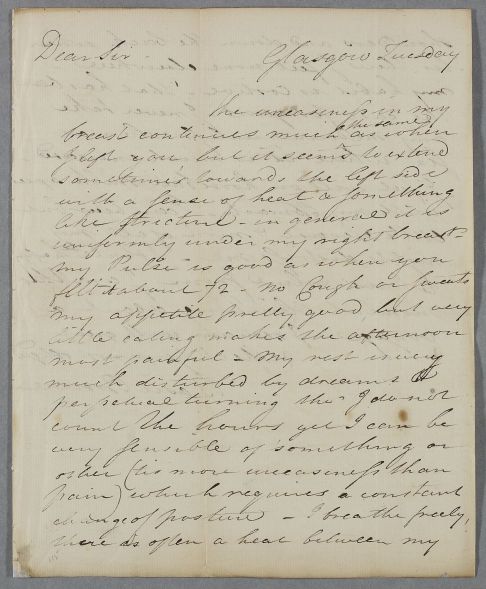 Dear Sir Glasgow Tuesday
The uneasiness in my
breast continues much the same as when
I left you but it seems to extend
sometimes towards the left side
with a sense of heat & something
like stricture - in general it is
uniformly under my right breast -
my Pulse is good as when you
felt it about 72 - no Cough or sweats
my appetite pretty good, but very
little eating makes the afternoon
most painful - My rest is very
much disturbed by dreams &
perpetual turning tho' I do not
count the hours yet I can be
very sensible of something or
other (tis more uneasiness than
pain) which requires a constant
change of posture - I breathe freely,
there is often a heat between my